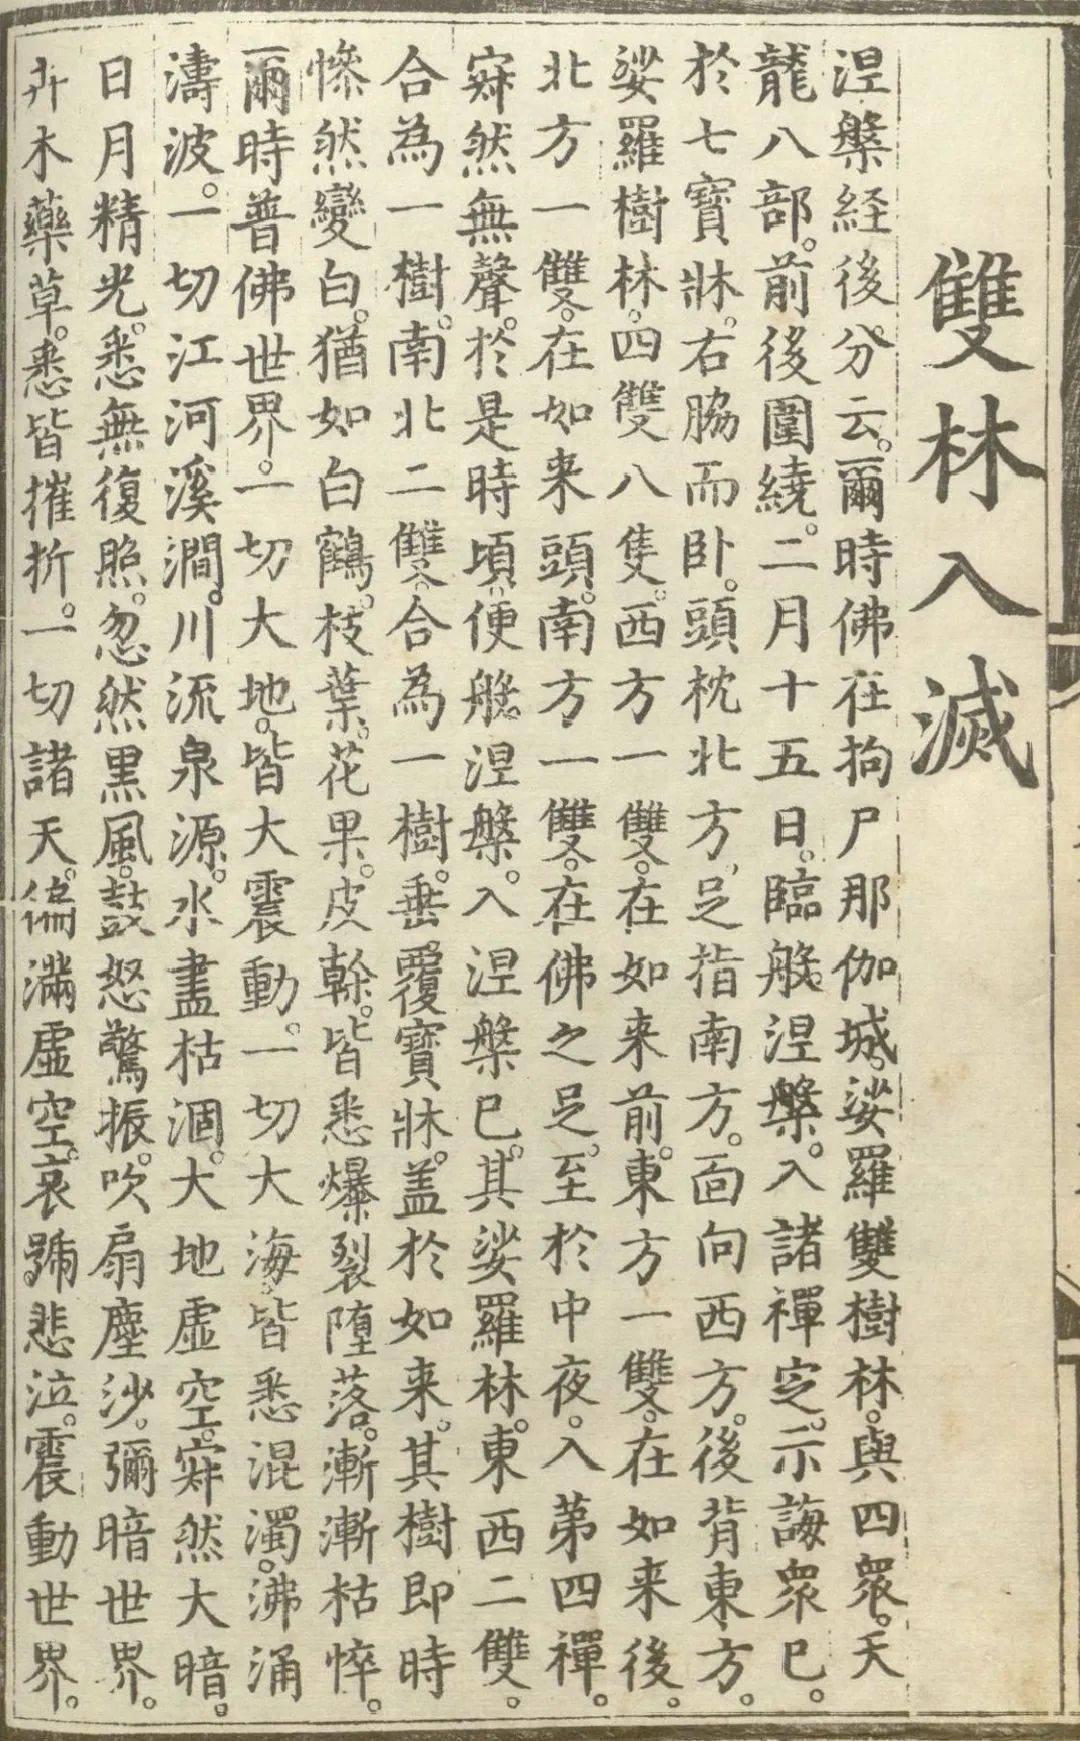 雙林入滅
涅槃経後分云。爾時佛在拘尸那伽城。娑羅雙樹林。與四眾。天
龍八部。前後圍繞。二月十五日。臨般涅槃。入諸禪㝎。示誨眾已。
於七寶牀。右脇而卧。頭枕北方。足指南方。面向西方。後背東方。
娑羅樹林。四雙八隻。西方一雙。在如来前。東方一雙。在如来後。
北方一雙。在如来頭。南方一雙。在佛之足。至於中夜。入第四禪。
㝥然無聲。於是時頃。便般涅槃。入涅槃已。其娑羅林。東西二雙。
合為一樹。南北二雙。合為一樹。垂覆寶牀。盖於如来。其樹即時
慘然變白。猶如白鶴。枝葉。花果。皮幹。皆悉爆裂墮落。漸漸枯悴。
爾時普佛世界。一切大地。皆大震動。一切大海。皆悉混濁。沸涌
濤波。一切江河溪澗。川流泉源。水盡枯涸。大地虛空。㝥然大暗。
日月精光。悉無復照。忽然黒風。鼓怒驚振。吹扇塵沙。彌暗世界。
卉木藥草。悉皆摧折。一切諸天。徧滿虛空。哀號悲泣。震動世界。